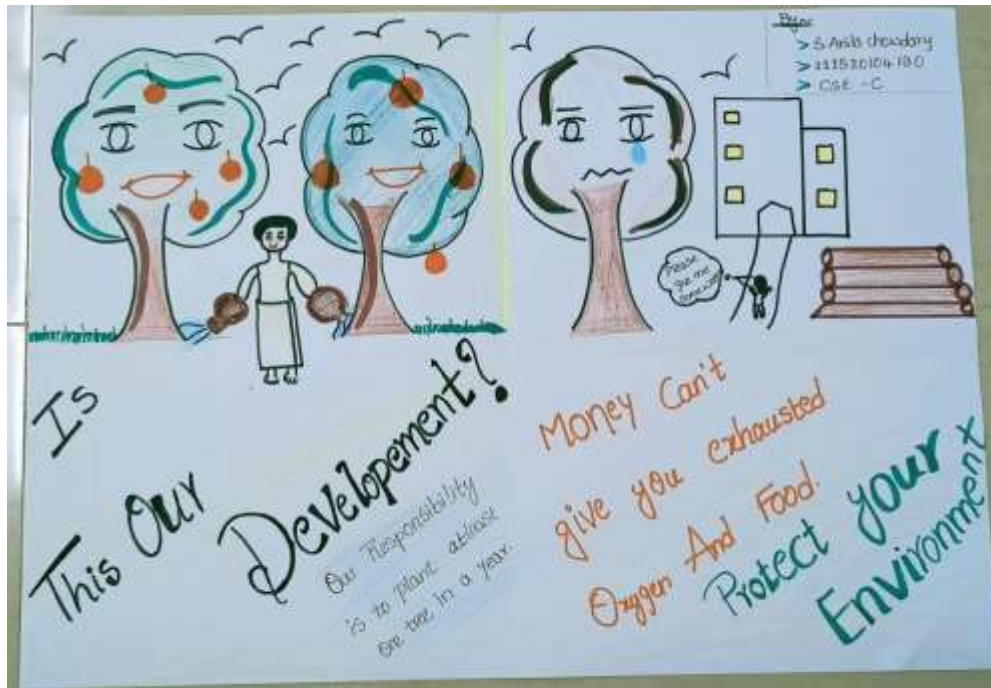 By:-
> S Arsla chowdary
> 111520104130
> CSE - C
Please
give me
Is
This Our
Developement?
Our Responsibility
is to plant atleast
one tree in a year.
Money Can't
give you exhausted
Oxygen And Food.
Protect your
Environment